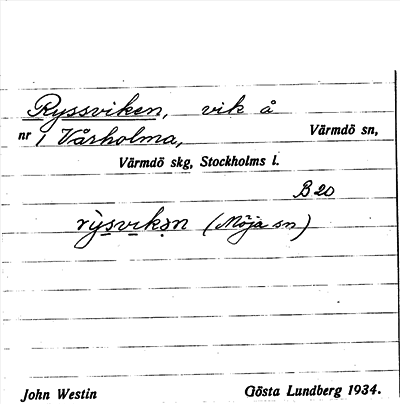 Ryssviken, vik å
nr 1 Vårholma, Värmdö sn,
Värmdö skg, Stockholms l.
B 20
rỳsvikən (Möja sn)
John Westin Gösta Lundberg 1934.